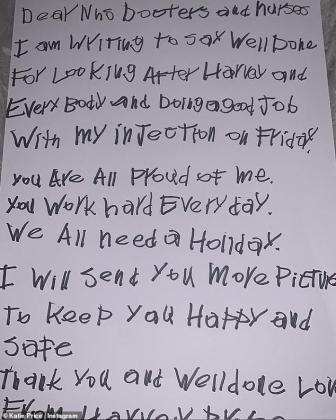 Dear Nhs Docters and nurses
I am Writing to sax Well Done
For Looking After Harvey and
Every Body and Doing a good Job
With my injection on Friday.
you Are All Proud of me.
You Work hard Every day.
We All need a Holiday.
I Will Send You More Picture
To Keep you Happy and
Safe
Thank You and Welldone Lov
From Harvey
© Katie Price / Instagram